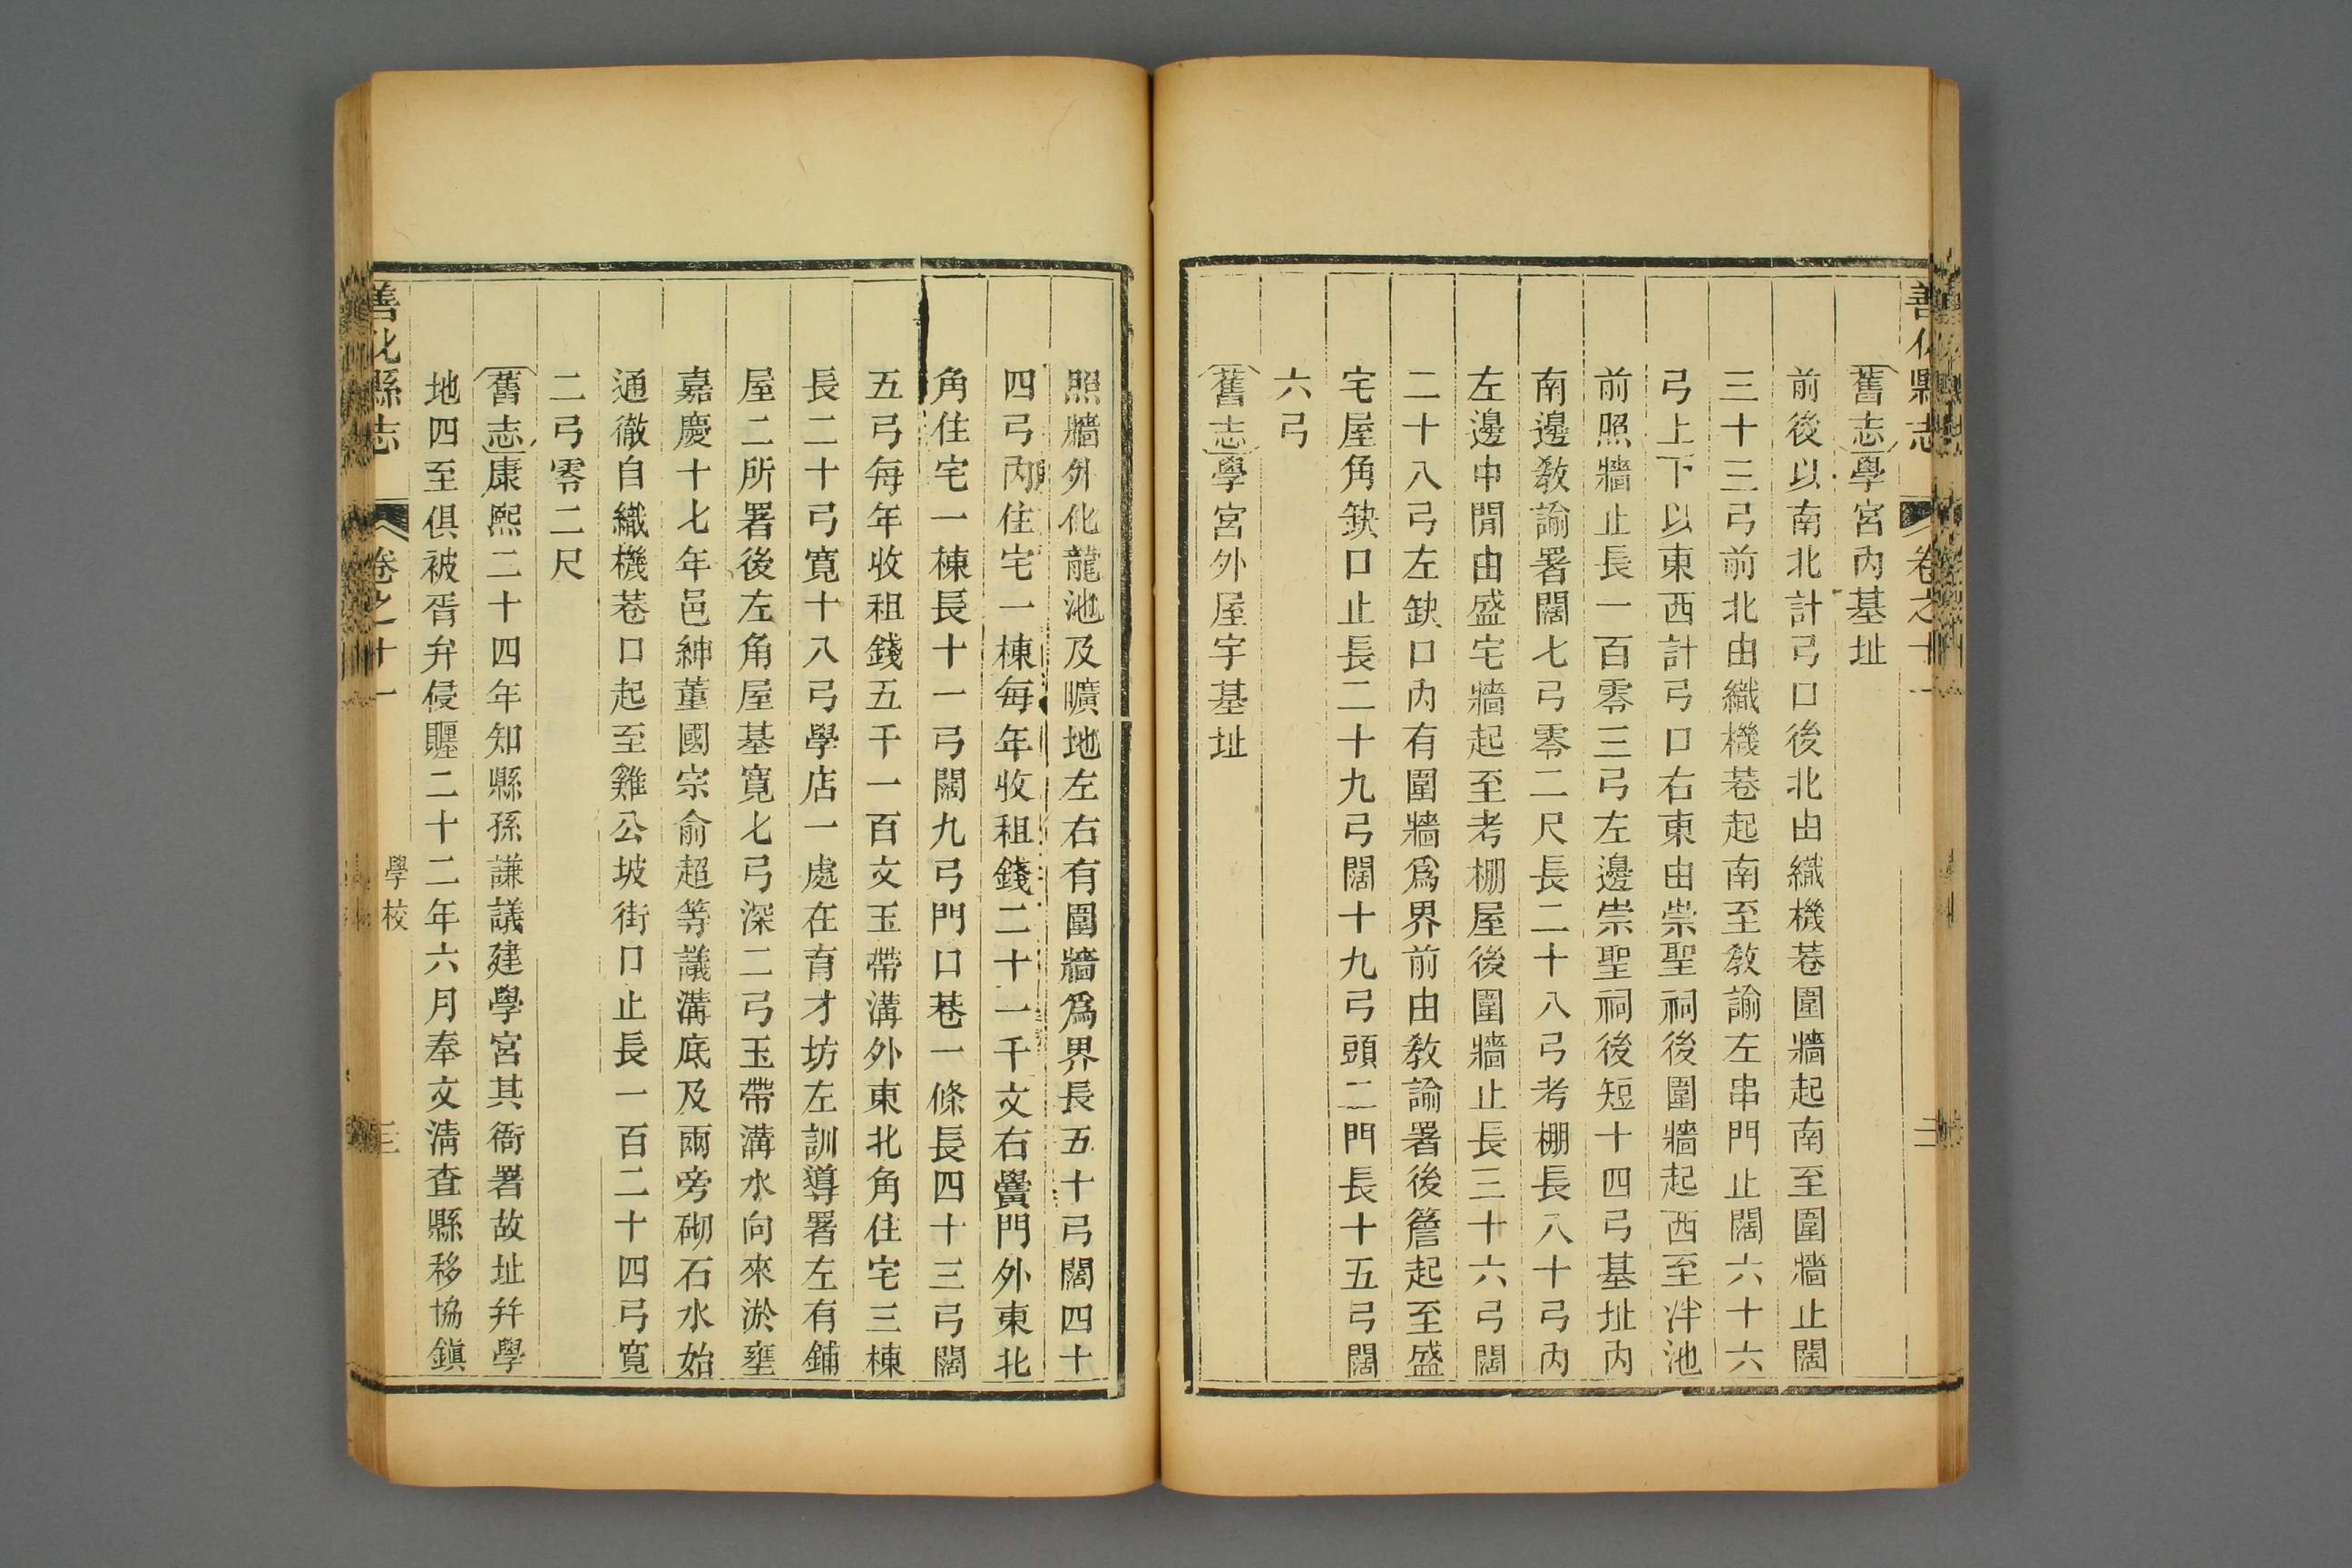 善化縣志 卷之十一 二
舊志學宮內基址
前後以南北計弓口後北由織機巷圍牆起南至圍牆止闊
三十三弓前北由織機巷起南至教諭左串門止闊六十六
弓上下以東西計弓口右東由崇聖祠後圍牆起西至泮池
前照牆止長一百零三弓左邊崇聖祠後短十四弓基址內
南邊教諭署闊七弓零二尺長二十八弓考棚長八十弓內
左邊中閒由盛宅牆起至考棚屋後圍牆止長三十六弓闊
二十八弓左缺口內有圍牆爲界前由教諭署後簷起至盛
宅屋角缺口止長二十九弓闊十九弓頭二門長十五弓闊
六弓
舊志學宮外屋宇基址
照牆外化龍池及曠地左右有圍牆爲界長五十弓闊四十
四弓內住宅一棟每年收租錢二十一千文右黌門外東北
角住宅一棟長十一弓闊九弓門口巷一條長四十三弓闊
五弓每年收租錢五千一百文玉帶溝外東北角住宅三棟
長二十弓寬十八弓學店一處在育才坊左訓導署左有鋪
屋二所署後左角屋基寬七弓深二弓玉帶溝水向來淤壅
嘉慶十七年邑紳董國宗俞超等議溝底及兩旁砌石水始
通徹自織機巷口起至雞公坡街口止長一百二十四弓寬
二弓零二尺
舊志康熙二十四年知縣孫謙議建學宮其衙署故址并學
地四至俱被胥弁侵𧸐二十二年六月奉文淸查縣移協鎭
善化縣志 卷之十一 學校 三